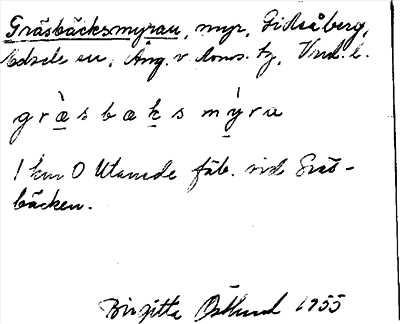 Gräsbäcksmyran, myr, Gideåberg,
Edsele sn, Ång. v doms. tg, Vnrl. l.
gràsbæksmýra
1 km O Utanede fäb. vid Gräs-
bäcken.
Birgitta Östlund 1955